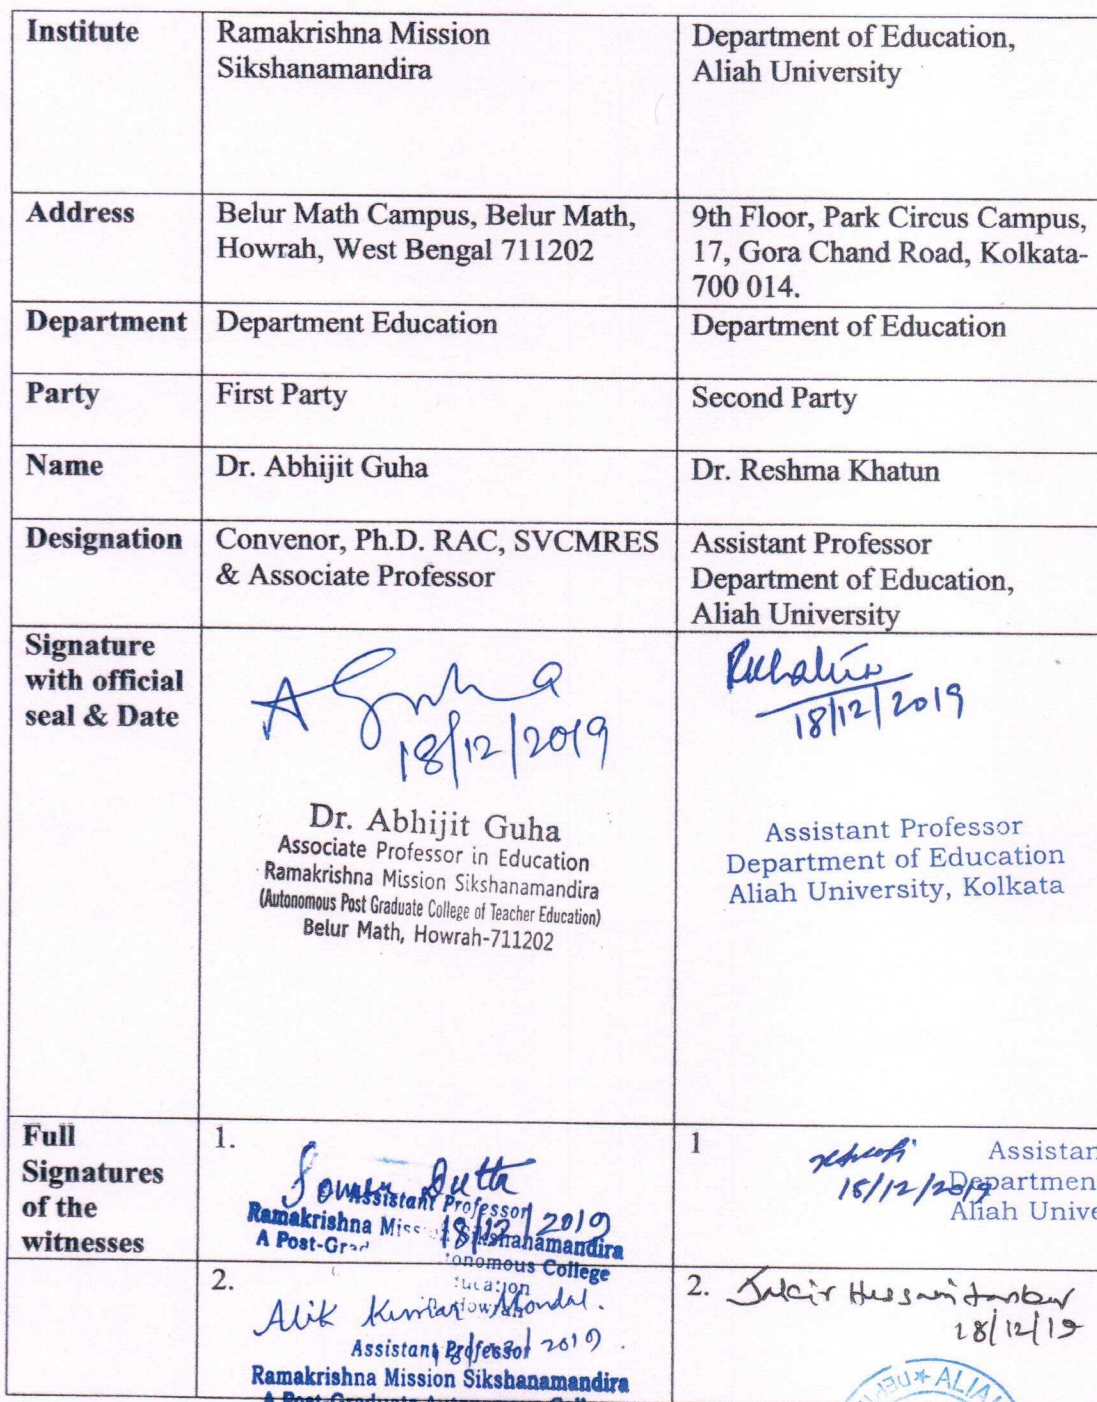 Institute
Ramakrishna Mission
Sikshanamandira
Department of Education,
Aliah University
Address
Belur Math Campus, Belur Math,
Howrah, West Bengal 711202
9th Floor, Park Circus Campus,
17, Gora Chand Road, Kolkata-
700 014.
Department
Department Education
Department of Education
Party
First Party
Second Party
Name
Dr. Abhijit Guha
Dr. Reshma Khatun
Designation
Convenor, Ph.D. RAC, SVCMRES
& Associate Professor
Assistant Professor
Department of Education,
Aliah University
Signature
with official
seal & Date
A Guha
18/12/2019
Dr. Abhijit Guha
Associate Professor in Education
Ramakrishna Mission Sikshanamandira
(Autonomous Post Graduate College of Teacher Education)
Belur Math, Howrah-711202
RKhatun
18/12/2019
Assistant Professor
Department of Education
Aliah University, Kolkata
Full
Signatures
of the
witnesses
1.
Dutta
Assistant Professor
18/12/2019
Ramakrishna Mission Sikshanamandira
A Post-Grad
onomous College
ucation
1
18/12/2019
Assistan
Departmen
Aliah Unive
2.
Alik Kumar Mondal.
2019.
Assistant Professor
Ramakrishna Mission Sikshanamandira
A Post-Graduate Autonomous Colle
2. Jakir Hussain
18/12/19
ALIA